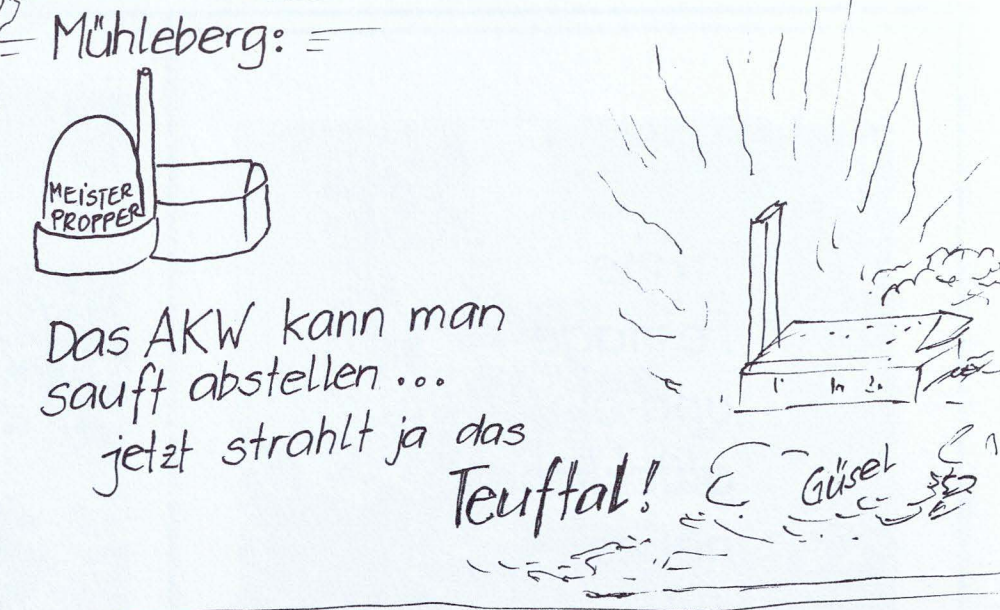 Mühleberg:
MEiSTER
PROPPER
Das AKW kann man
sauft abstellen...
jetzt strahlt ja das
Teuftal!
Güsel